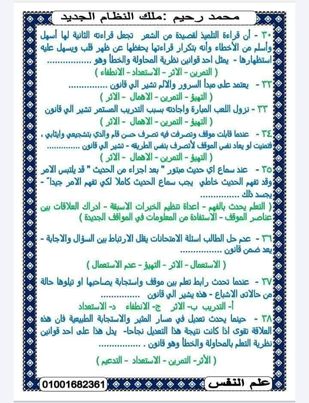 محمد رحيم :ملك النظام الجديد
٣٠ - أن قراءة التلميذ لقصيدة من الشعر تجعل قراءته الثانية لها أسهل
وأسلم من الأخطاء وأنه بتكرار قراءتها يحفظها عن ظهر قلب ويسهل عليه
استظهارها - يمثل احد قوانين نظرية المحاولة والخطأ وهو ................
( التمرين - الاثر - الاستعداد - الانطفاء )
٣٢ - يعتمد على مبدأ السرور والالم تشير الي قانون ...............
( التهيؤ - التمرين - الاهمال - الاثر )
٣٣ - نزول اللعب المباراة وإجادته بسبب التدريب المستمر تشير الي قانون ........
( التهيؤ - التمرين - الاهمال - الاثر )
٣٤ - عندما قابلت موقف وتصرفت فيه تصرف حسن قام والدي بتشجيعي وإثابتي ،
فتمنيت لو يعاد نفس الموقف لأتصرف بنفس الطريقه - تشير الي قانون ..........
( التهيؤ - التمرين - الاهمال - الاثر )
٣٥ - عند سماع اي حديث مبتور " بعد اجزاء من الحديث " قد يلتبس الامر
وقد تفهم الحديث خاطي يجب سماع الحديث كاملا لكي تفهم الامر جيدا" -
يجسد ذلك ................
( التعلم يحدث بالفهم - اعداة تنظيم الخبرات الاسبقة - ادراك العلاقات بين
عناصر الموقف - الاستفادة من المعلومات في المواقف الجديدة )
٣٦ - عدم حل الطالب اسئلة الامتحانات يقلل الارتباط بين السؤال والاجابة -
يعد ضمن قانون ..............
( الاستعمال - الاثر - التهيؤ - عدم الاستعمال )
٣٧ - عندما تحدث رابطة تعلم بين موقف واستجابة يصاحبها او تيلوها حالة
من حالاتي الاشباع - هذه يشير الي قانون ..............
أ- التدريب ب- الاثر ج- الانطفاء د- الاستعداد
٣٨ - حينما يحدث تعديل في مسار المثير والاستجابة الطبيعية فان هذه
العلاقة تقوى اذا كانت نتيجة هذا التعديل نجاحا- يدل هذا على احد قوانين
نظرية التعلم بالمحاولة والخطأ وهو قانون ..............
( الأثر- التمرين - الاستعداد - التدعيم )
علم النفس
01001682361